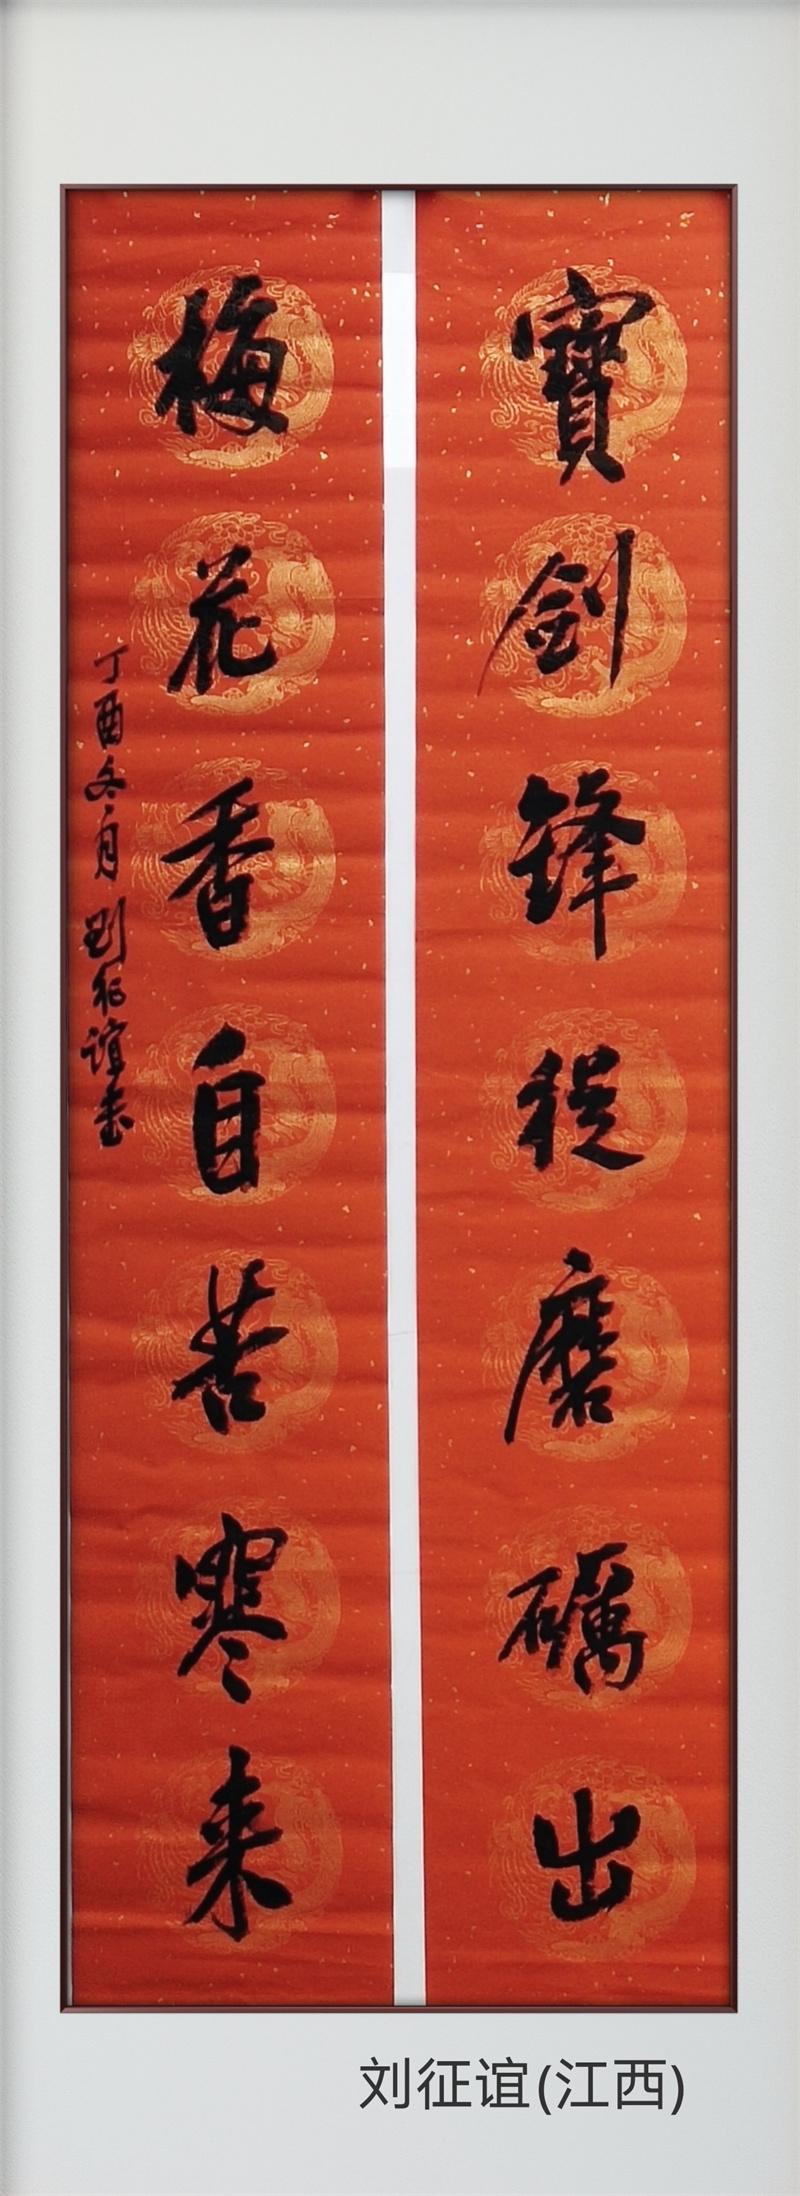 寶劍鋒從磨礪出
梅花香自苦寒来
丁酉冬月刘征谊书
刘征谊(江西)